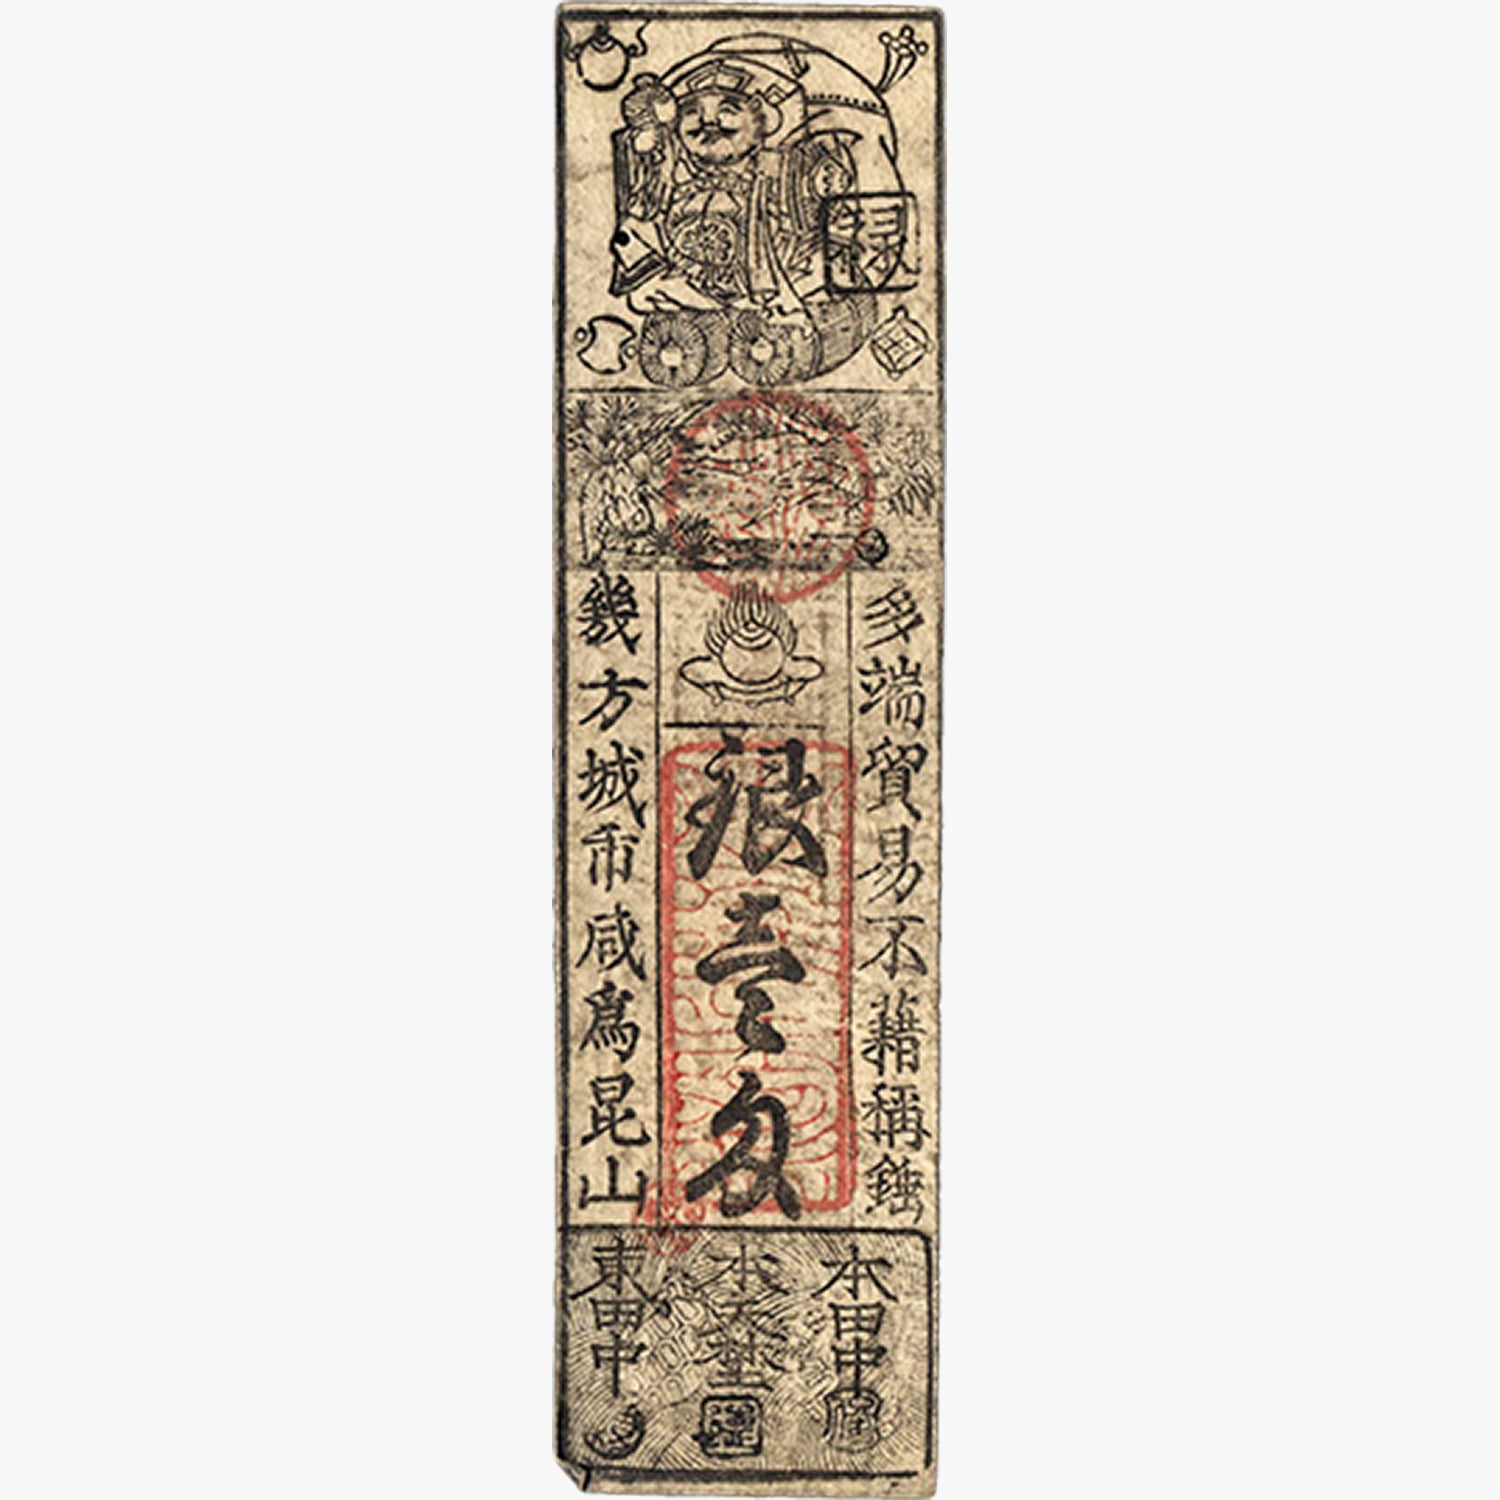 多端貿易不藉稱錘
銀壹匁
幾方城市咸爲昆山
本田中
本天埜
東田中